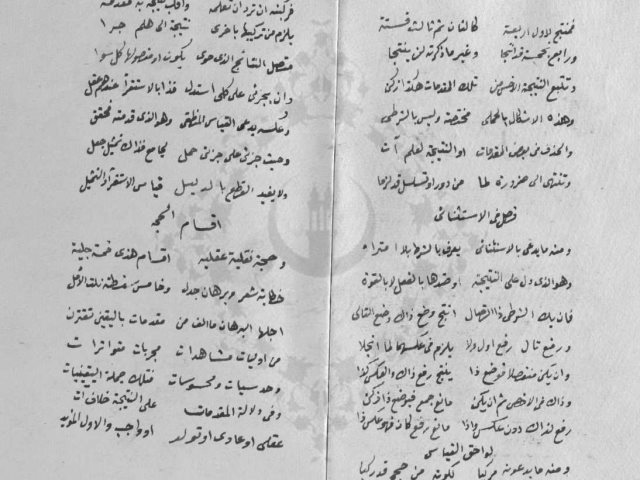 فمنتج لاول اربعة كالثان ثم ثالث فستة
ورابع بخمسة قد انتجا وغير ما ذكرته لن ينتجا
وتتبع النتيجة الاخس من تلك المقدمات هكذا زكن
وهذه الاشكال بالحملي مختصة وليس بالشرطي
والحذف في بعض المقدمات او النتيجة لعلم آت
وتنتهى الى ضرورة لما من دور او تسلسل قد لزما
فصل فى الاستثنائى
ومنه ما يدعى بالاستثنائى يعرف بالشرط بلا امتراء
وهو الذى دل على النتيجة او ضدها بالفعل لا بالقوة
فان يك الشرطى ذا اتصال انتج وضع ذاك وضع التالى
ورفع تال رفع اول ولا يلزم فى عكسهما لما انجلا
وان يكن منفصلا فوضع ذا ينتج رفع ذاك والعكس كذا
وذاك فى الاخص ثم ان يكن مانع جمع فبوضع ذا زكن
رفع لذاك دون عكس واذا مانع رفع كان فهو عكس ذا
لواحق القياس
ومنه ما يدعونه مركبا لكونه من حجج قد ركبا
فركبنه ان ترد ان تعلمه واقلب نتيجة به مقدمة
يلزم من تركيبها باخرى نتيجة الى هلم جرا
متصل النتائج الذى حوى يكون او مفصولها كل سوا
وان بجزئى على كلى استدل فذا بالاستقرا عندهم عقل
وعكسه يدعى القياس المنطقى وهو الذى قدمته فحقق
وحيث جزئى على جزئى حمل لجامع فذاك تمثيل جعل
ولا يفيد القطع بالدليل قياس الاستقراء والتمثيل
اقسام الحجه
وحجة نقلية عقلية اقسام هذى خمسة جلية
خطابة شعر وبرهان جدل وخامس سفسطة نلت الأمل
اجلها البرهان ما الف من مقدمات باليقين تقترن
من اوليات مشاهدات مجربات متواترات
وحدسيات ومحسوسات فتلك جملة اليقينيات
وفى دلالة المقدمات على النتيجة خلاف ات
عقلى او عادى او تولد او واجب والاول المؤيد